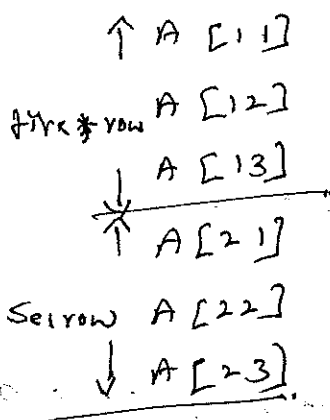 A [11]
first row A [12]
A [13]
A [21]
Sec row A [22]
A [23]